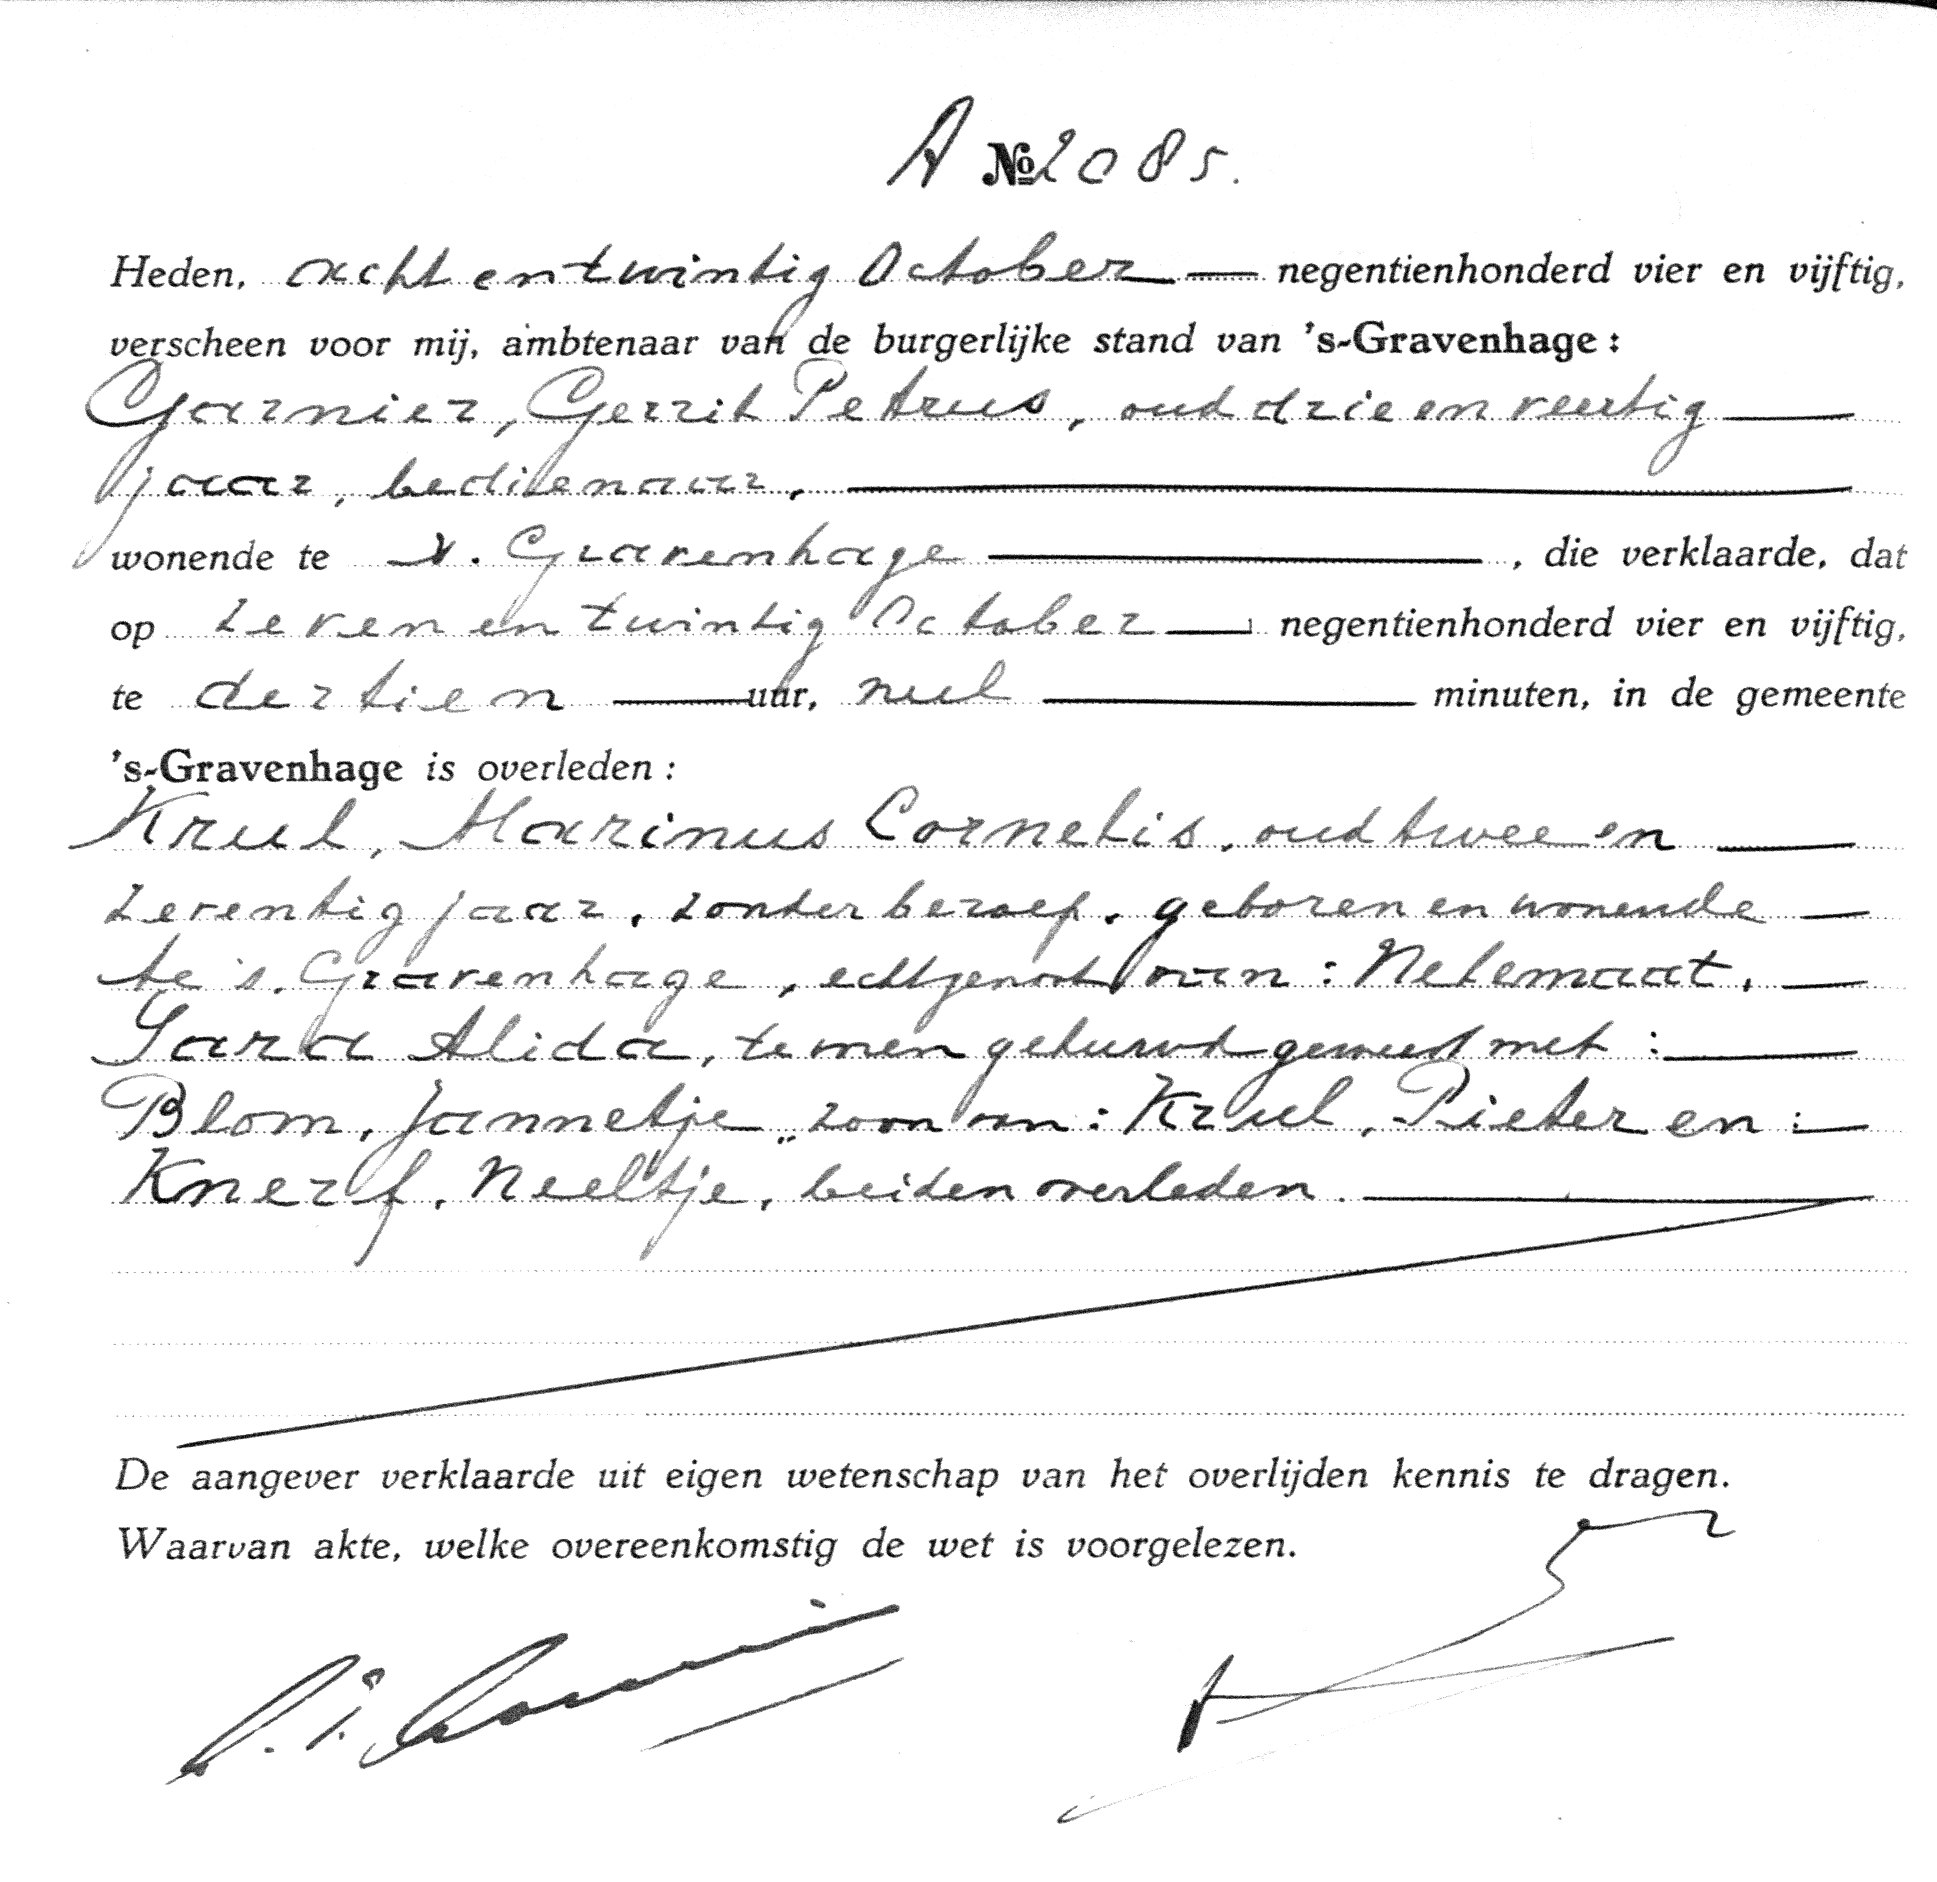 A № 2085.
Heden, acht en twintig October — negentienhonderd vier en vijftig,
verscheen voor mij, ambtenaar van de burgerlijke stand van 's-Gravenhage:
Garnier, Gerrit Petrus, oud drie en veertig —
jaar, bedienaar, —
wonende te 's. Gravenhage —, die verklaarde, dat
op zeven en twintig October — negentienhonderd vier en vijftig,
te dertien — uur, nul — minuten, in de gemeente
's-Gravenhage is overleden:
Krul, Marinus Cornelis, oud twee en —
zeventig jaar, zonder beroep, geboren en wonende —
te 's. Gravenhage, echtgenoot van: Nelemaat, —
Sara Alida, te voren gehuwd geweest met: —
Blom, Jannetje,, zoon van: Krul, Pieter en: —
Knerf, Neeltje, beiden overleden. —
De aangever verklaarde uit eigen wetenschap van het overlijden kennis te dragen.
Waarvan akte, welke overeenkomstig de wet is voorgelezen.